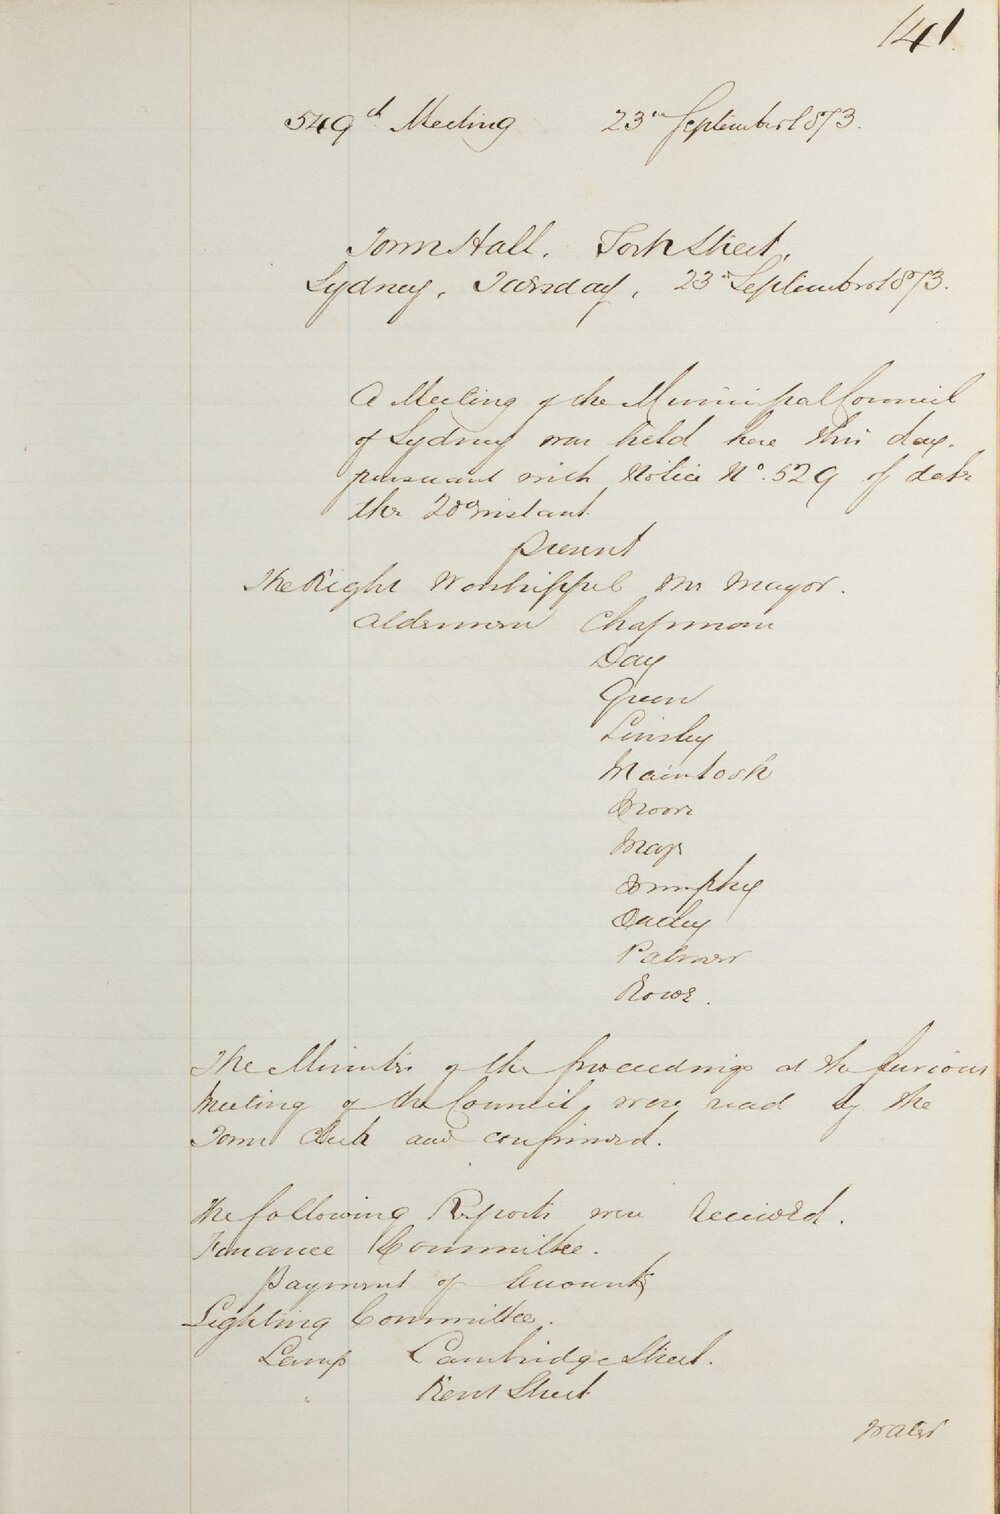 141
549th Meeting 23rd September 1873.
Town Hall. York Street,
Sydney, Tuesday, 23rd September 1873.
A Meeting of the Municipal Council
of Sydney was held here this day,
pursuant with Notice No. 529 of date
the 20th instant
Present
The Right Worshipful the Mayor.
Aldermen Chapman
Day
Green
Linsley
Macintosh
Moore
Mays
Murphy
Oatley
Palmer
Rowe.
The Minutes of the proceedings at the previous
Meeting of the Council, were read by the
Town Clerk and confirmed.
The following Reports were received.
Finance Committee.
Payment of Accounts
Lighting Committee.
Lamp Cambridge Street.
" Kent Street
Water